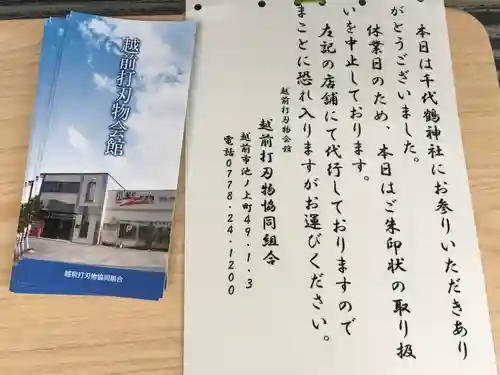 本日は千代鶴神社にお参りいただきあり
がとうございました。
休業日のため、本日はご朱印状の取り扱
いを中止しております。
左記の店舗にて代行しておりますので
まことに恐れ入りますがお運びください。
越前打刃物会館
越前打刃物協同組合
越前市池ノ上町49.1.3
電話0778.24.1200
越前打刃物会館
越前打刃物協同組合